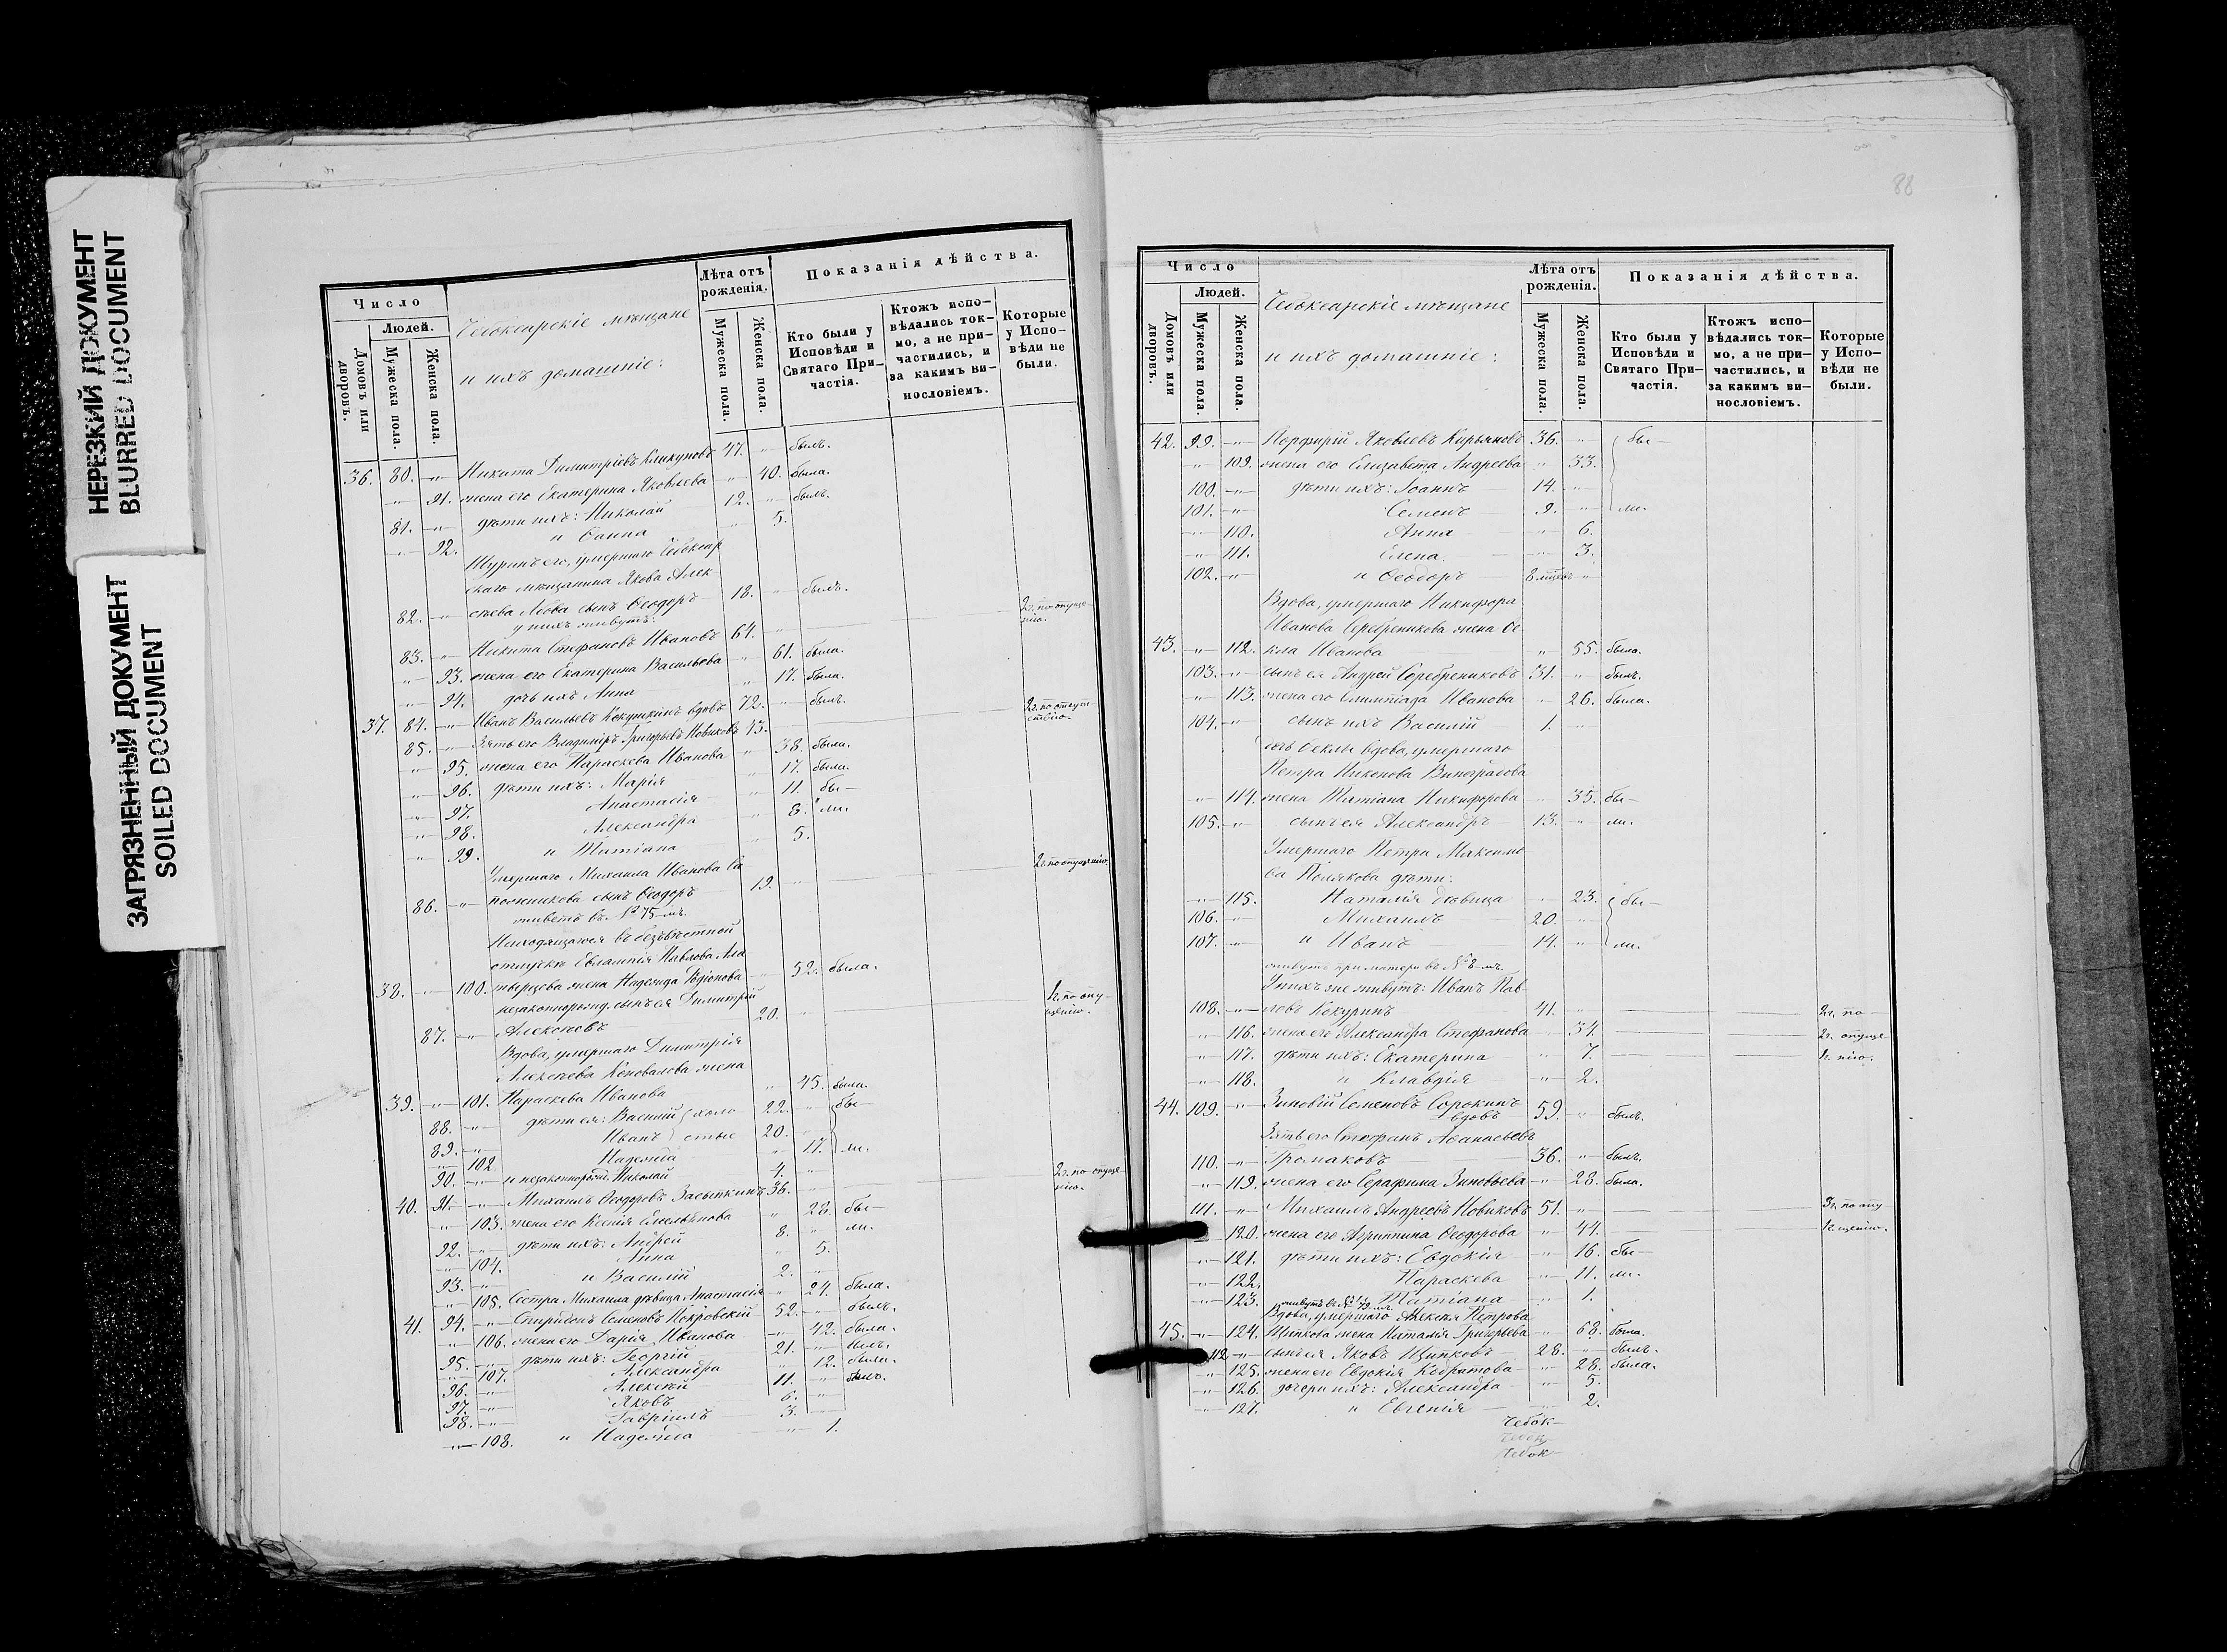 НЕРЕЗКИЙ ДОКУМЕНТ
BLURRED DOCUMENT
ЗАГРЯЗНЕННЫЙ ДОКУМЕНТ
SOILED DOCUMENT
Число
Людей.
Домовъ или дворовъ.
Мужеска пола.
Женска пола.
Чебоксарскіе мѣщане
и ихъ домашніе:
Лѣта отъ рожденія.
Мужеска пола.
Женска пола.
Показанія дѣйства.
Кто были у Исповѣди и Святаго Причастія.
Ктожъ исповѣдались токмо, а не причастились, и за какимъ винословіемъ.
Которые у Исповѣди не были.
36. 80. —"— Никита Димитріевъ Кликуновъ 47. " былъ.
—"— 91. жена его Екатерина Яковлева —"— 40. была.
81. —"— дѣти ихъ: Николай 12. " былъ.
—"— 92. и Ѳанна " 5.
Шуринъ его, умершаго Чебоксар
скаго мѣщанина Якова Алек
82. —"— сѣева Львова сынъ Ѳеодоръ 18. " былъ.
у нихъ живутъ:
83. —"— Никита Стефановъ Ивановъ 64. " — 2г. по опуще-
нію.
—"— 93. жена его Екатерина Васильева " 61. была.
—"— 94. дочь ихъ Анна " 17. была.
37. 84. —"— Иванъ Васильевъ Кокушкинъ вдовъ 72. " былъ.
85. —"— Зять его Владиміръ Григорьевъ Новиковъ 43. — 2г. по отсут-
ствію.
—"— 95. жена его Параскева Иванова " 38. была.
—"— 96. дѣти ихъ: Марія " 17. была.
—"— 97. Анастасія " 11. бы—
—"— 98. Александра " 8. ли.
—"— 99. и Татіана " 5.
Умершаго Михаила Иванова Са
86. —"— пожникова сынъ Ѳеодоръ 19. " — 2г. по опущенію.
живетъ въ № 75-мъ.
Находящагося въ безъизвѣстной
отлучкѣ Евлампія Павлова Ала
38. —"— 100. тырцева жена Надежда Родіонова 52. была.
незаконнорожд. сынъ ея Димитрій
87. —"— Алексѣевъ 20. — 1г. по опу-
щенію.
Вдова, умершаго Димитрія
Алексѣева Коновалова жена
39. —"— 101. Параскева Иванова " 45. была.
88. —"— дѣти ея: Василій } холо 22. " бы—
89. —"— Иванъ } стые 20. "
—"— 102 Надежда " 17. ли.
90. —"— и незаконнорожд. Николай 4. "
40. 91. —"— Михаилъ Ѳеодоровъ Засыпкинъ 36. — 2г. по опуще-
нію.
—"— 103. жена его Ксенія Емельянова " 28. бы—
92. —"— дѣти ихъ: Андрей 8. " ли.
—"— 104. Анна " 5.
93. —"— и Василій 2. "
—"— 105. Сестра Михаила дѣвица Анастасія " 24. была.
41. 94. —"— Спиридонъ Семеновъ Покровскій 52. —"— былъ.
—"— 106. жена его Дарія Иванова —"— 42. была.
95. —"— дѣти ихъ: Георгій 21. —"— былъ.
—"— 107. Александра " 12. была.
96. —"— Алексѣй 11. —"— былъ.
97. —"— Яковъ 6. —"—
98. —"— Гавріилъ 3. —
—"— 108. и Надежда —"— 1.
88
Число
Людей.
Домовъ или дворовъ.
Мужеска пола.
Женска пола.
Чебоксарскіе мѣщане
и ихъ домашніе:
Лѣта отъ рожденія.
Мужеска пола.
Женска пола.
Показанія дѣйства.
Кто были у Исповѣди и Святаго Причастія.
Ктожъ исповѣдались токмо, а не причастились, и за какимъ винословіемъ.
Которые у Исповѣди не были.
42. 99. —"— Порфирій Яковлевъ Кирьяновъ 36. " бы—
—"— 109. жена его Елизавета Андреева " 33.
100. —"— дѣти ихъ: Іоаннъ 14. "
101. —"— Семенъ 9. " ли.
—"— 110. Анна —"— 6.
—"— 111. Елена —"— 3.
102. —"— и Ѳеодоръ 8 мѣсяц. "
Вдова, умершаго Никифора
Иванова Серебреникова жена Ѳе-
43. —"— 112. кла Иванова " 55. была.
103. —"— сынъ ея Андрей Серебрениковъ 31. " былъ.
—"— 113. жена его Олимпіада Иванова " 26. была.
104. —"— сынъ ихъ Василій 1. "
дочь Ѳеклы вдова, умершаго
Петра Никонова Виноградова
—"— 114. жена Татіана Никифорова " 35. бы—
105. —"— сынъ ея Александръ 13. " ли.
Умершаго Петра Максимо
ва Полякова дѣти:
—"— 115. Наталія дѣвица " 23. бы—
106. —"— Михаилъ 20. "
107. —"— и Иванъ 14. " ли.
живутъ при матери въ № 8-мъ.
У нихъ же живутъ: Иванъ Пав-
108. —"— ловъ Кокуринъ 41. " — 2г. по
—"— 116. жена его Александра Стефанова 34. — 2г. опуще
—"— 117. дѣти ихъ: Екатерина " 7. — 1г. нію.
—"— 118. и Клавдія —"— 2.
44. 109. —"— Зиновій Семеновъ Сорокинъ
вдовъ 59. " былъ.
Зять его Стефанъ Аѳанасьевъ
110. —"— Громаковъ 36. —"— былъ.
—"— 119. жена его Серафима Зиновьева —"— 28. была.
111. —"— Михаилъ Андреевъ Новиковъ 51. " — 3г. по опу-
—"— 120. жена его Агриппина Ѳеодорова —"— 44. — 1г. щенію.
—"— 121. дѣти ихъ: Евдокія —"— 16. бы—
—"— 122. Параскева —"— 11. ли.
—"— 123. живутъ въ № 79-мъ. Татіана —"— 1.
Вдова, умершаго Алексѣя Петрова
45. —"— 124. Щипкова жена Наталія Григорьева —"— 68. была.
112 —"— сынъ ея Яковъ Щипковъ 28. —"— былъ.
—"— 125. жена его Евдокія Кодратова —"— 28. была.
—"— 126. дочери ихъ: Александра —"— 5.
—"— 127. и Евгенія — 2.
Чебок-
Чебок
Чебок